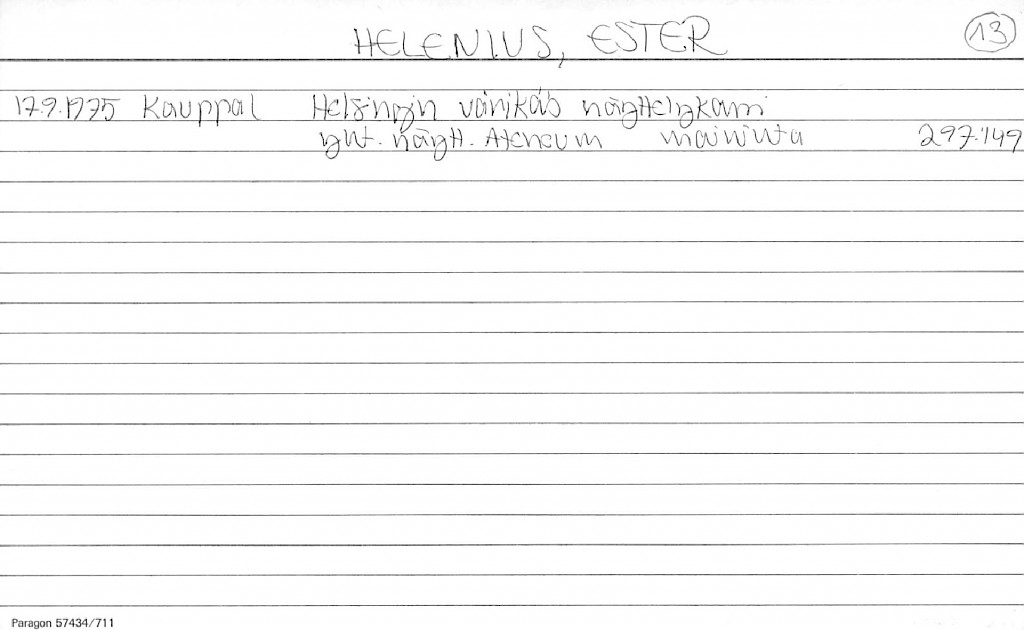 HELENIUS, ESTER 13
17.9.1975 Kauppal Helsingin värikäs näyttelykausi
yht. näytt. Ateneum maininta 297.149
Paragon 57434/711